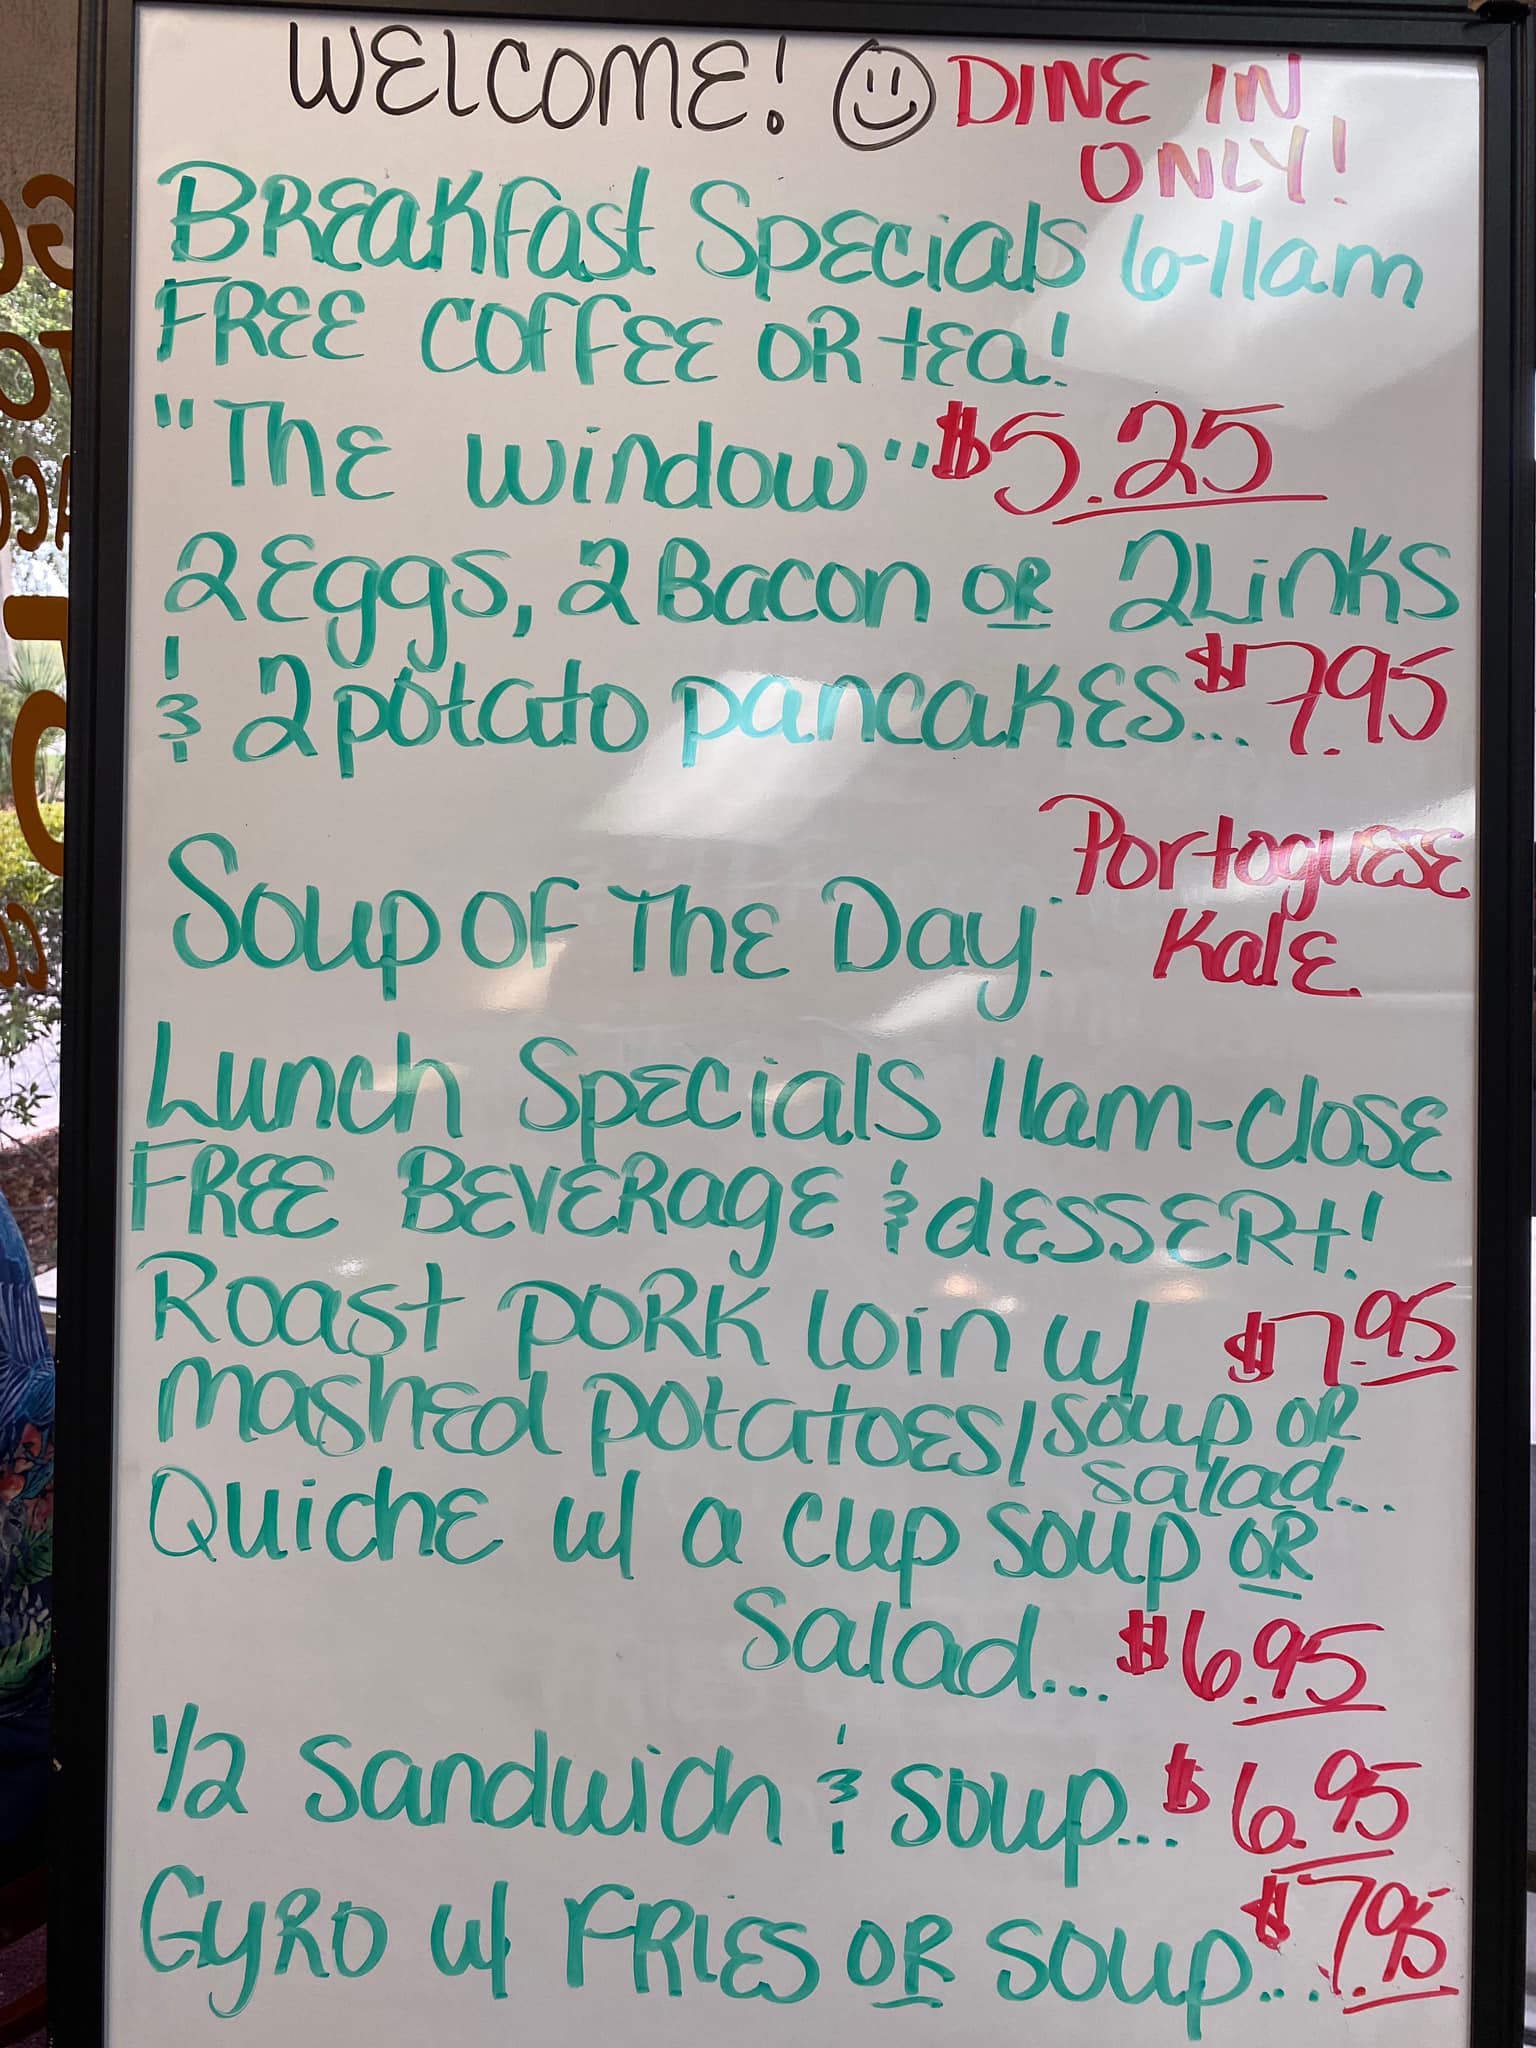 WELCOME! DINE IN
ONLY!
BREAKfast Specials 6-11am
FREE coffee OR tea!
"The window" $5.25
2 Eggs, 2 Bacon OR 2 Links
& 2 potato pancakes... $7.95
Soup Of The Day: Portoguese
Kale
Lunch Specials 11am-close
FREE Beverage & dessert!
Roast pork loin w/ $7.95
mashed potatoes/soup or
salad...
Quiche w/ a cup soup OR
Salad... $6.95
1/2 Sandwich & soup... $6.95
Gyro w/ Fries OR soup... $7.95